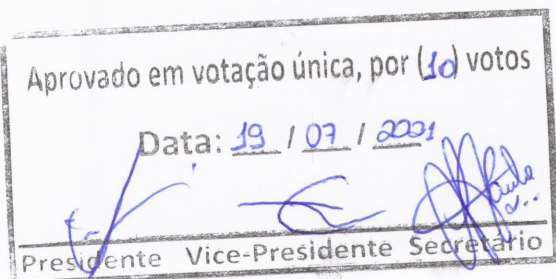 Aprovado em votação única, por (10) votos
Data: 19 / 07 / 2021
Presidente Vice-Presidente Secretário